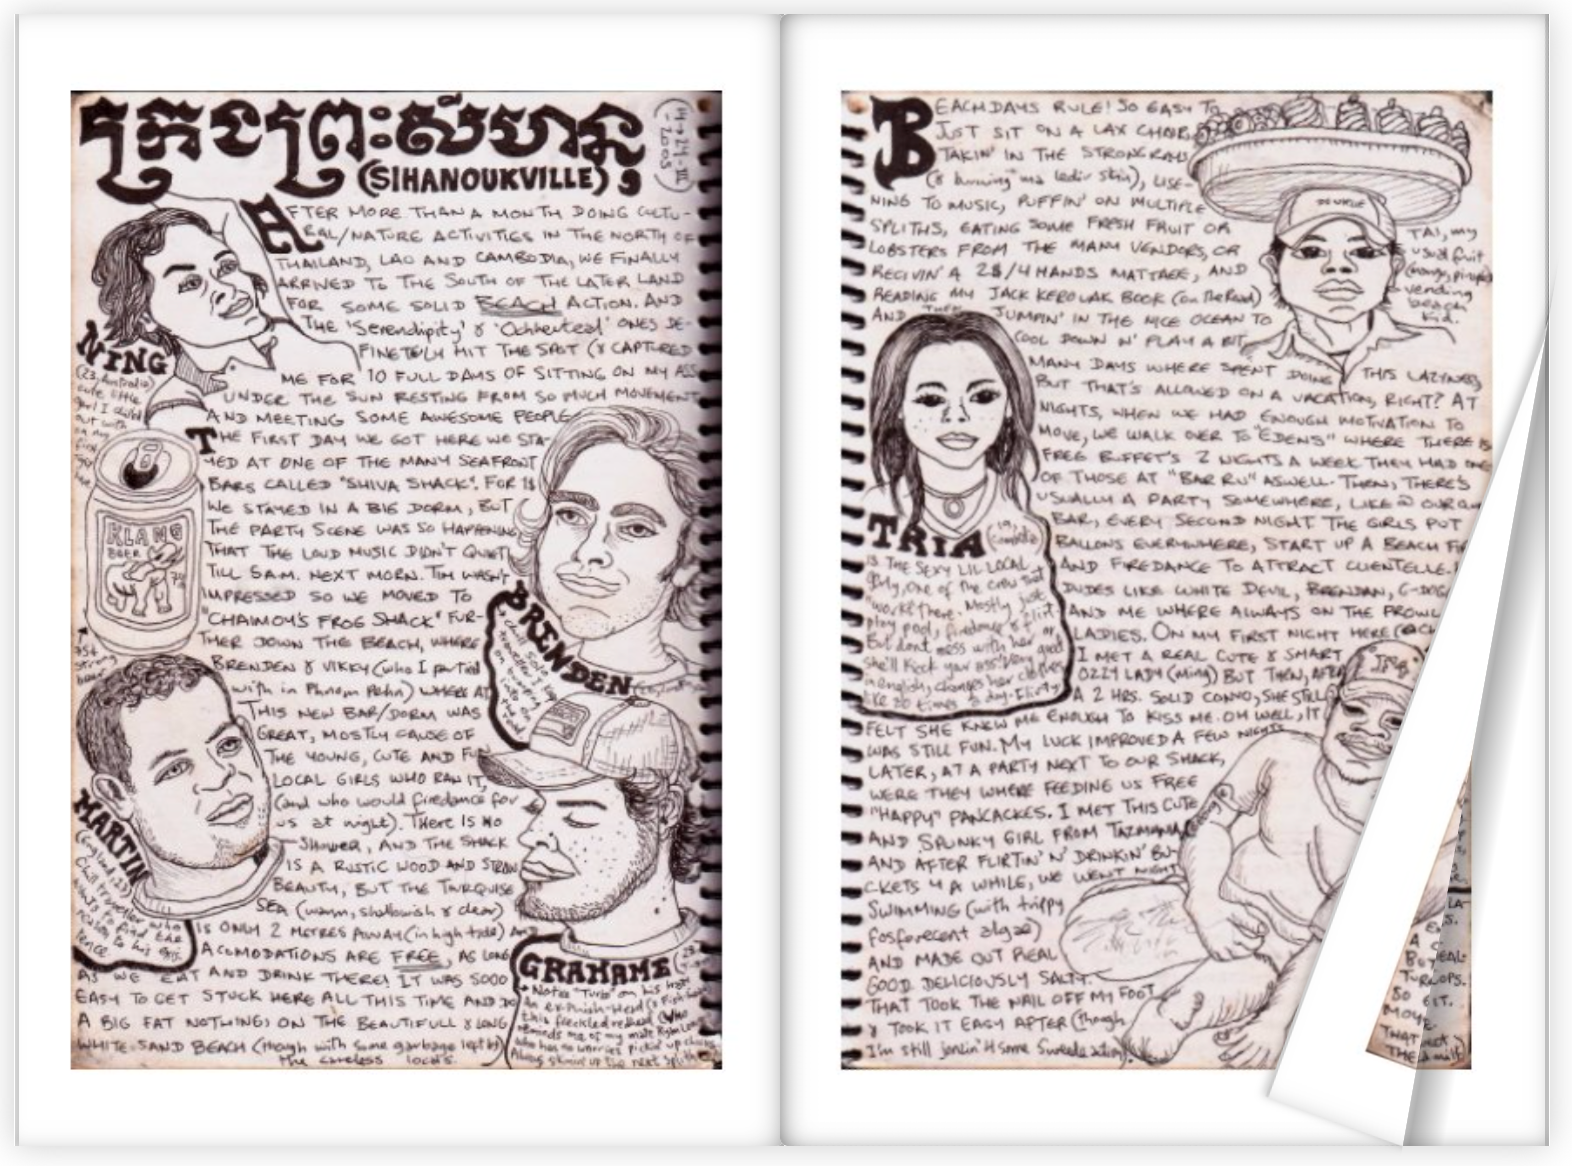 ក្រុងព្រះសីហនុ
(SIHANOUKVILLE)
AFTER MORE THAN A MONTH DOING CULTU-
RAL/NATURE ACTIVITIES IN THE NORTH OF
THAILAND, LAO AND CAMBODIA, WE FINALLY
ARRIVED TO THE SOUTH OF THE LATER LAND
FOR SOME SOLID BEACH ACTION. AND
THE 'Serendipity' & 'Ochheuteal' ONES DE-
FINETELY HIT THE SPOT (& CAPTURED
ME FOR 10 FULL DAYS OF SITTING ON MY ASS
UNDER THE SUN RESTING FROM SO MUCH MOVEMENT
AND MEETING SOME AWESOME PEOPLE
NING
(23, Australia)
cute little
girl I chilld
out with
on my
first
THE FIRST DAY WE GOT HERE WE STA-
YED AT ONE OF THE MANY SEAFRONT
BARS CALLED "SHIVA SHACK". FOR 1$
WE STAYED IN A BIG DORM, BUT
THE PARTY SCENE WAS SO HAPPENING
THAT THE LOUD MUSIC DIDN'T QUIET
TILL 5 A.M. NEXT MORN. TIM WASN'T
IMPRESSED SO WE MOVED TO
"CHAIMOY'S FROG SHACK" FUR-
THER DOWN THE BEACH, WHERE
BRENDEN & VIKKY (who I partied
with in Phnom Pehn) WHERE AT
THIS NEW BAR/DORM WAS
GREAT, MOSTLY CAUSE OF
THE YOUNG, CUTE AND FUN
LOCAL GIRLS WHO RAN IT,
(and who would firedance for
us at night). THERE IS NO
SHOWER, AND THE SHACK
IS A RUSTIC WOOD AND STRAW
BEAUTY, BUT THE TURQUISE
SEA (warm, shallowish & clear)
IS ONLY 2 METRES AWAY (in high tide) AND
ACOMODATIONS ARE FREE, AS LONG
AS WE EAT AND DRINK THERE! IT WAS SOOO
EASY TO GET STUCK HERE ALL THIS TIME AND DO
A BIG FAT NOTHING ON THE BEAUTIFULL & LONG
WHITE SAND BEACH (though with some garbage left by
the careless locals.
KLANG
BEER
strong
beer
BRENDEN
chill solo
traveller I kept
on bumping
into on
my road.
MARTIN
(England, 23)
Chill traveller who
wants to find the
reason to his exis-
tence
GRAHAME
Notice "Turbo" on his hat
this freckled redhead (who
reminds me of my mate Ryan
who has no worries pickin' up chicks
Always skinin' up the next spliff
BEACH DAYS RULE! SO EASY TO
JUST SIT ON A LAX CHAIR
TAKIN' IN THE STRONG RAYS
(& burning ma ledir skin), LISE-
NING TO MUSIC, PUFFIN' ON MULTIPLE
SPLITHS, EATING SOME FRESH FRUIT OR
LOBSTERS FROM THE MANY VENDORS, OR
RECIVIN' A 2$/4 HANDS MATTAGE, AND
READING MY JACK KEROUAK BOOK (on the Road)
AND THEN JUMPIN' IN THE NICE OCEAN TO
COOL DOWN N' PLAY A BIT.
TAI, my
usual fruit
vending
beach
kid.
MANY DAYS WHERE SPENT DOING THIS LAZYNESS,
BUT THAT'S ALLOWED ON A VACATION, RIGHT? AT
NIGHTS, WHEN WE HAD ENOUGH MOTIVATION TO
MOVE, WE WALK OVER TO "EDENS" WHERE THERE IS
FREE BUFFET'S 2 NIGHTS A WEEK. THEY HAD ONE
OF THOSE AT "BAR RU" ASWELL. THEN, THERE'S
USUALLY A PARTY SOMEWHERE, LIKE @ OUR OWN
BAR, EVERY SECOND NIGHT THE GIRLS PUT
BALLONS EVERYWHERE, START UP A BEACH
AND FIREDANCE TO ATTRACT CLIENTELLE.
DUDES LIKE WHITE DEVIL, BRENDAN, G-DOG
AND ME WHERE ALWAYS ON THE PROWL
LADIES. ON MY FIRST NIGHT HERE
I MET A REAL CUTE & SMART
OZZY LADY (Ning) BUT THEN, AFTER
A 2 HRS. SOLID CONVO, SHE STILL
FELT SHE KNEW ME ENOUGH TO KISS ME. OH WELL, IT
WAS STILL FUN. MY LUCK IMPROVED A FEW NIGHTS
LATER, AT A PARTY NEXT TO OUR SHACK,
WERE THEY WHERE FEEDING US FREE
"HAPPY" PANCACKES. I MET THIS CUTE
AND SPUNKY GIRL FROM TAZMANIA
AND AFTER FLIRTIN' N' DRINKIN' BU-
CKETS 4 A WHILE, WE WENT NIGHT
SWIMMING (with trippy
fosforecent algae)
AND MADE OUT REAL
GOOD. DELICIOUSLY SALTY.
THAT TOOK THE NAIL OFF MY FOOT
& TOOK IT EASY AFTER (though
I'm still
TRIA
(19,
IS THE SEXY LIL LOCAL
girly, one of the crew that
"works" there. Mostly just
play pool, firedance & flirt
But dont mess with her or
she'll kick yar ass! Very good
in english, changes her clothes
like 20 times a day. Flirty